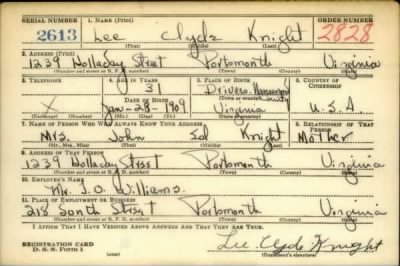 SERIAL NUMBER 1. NAME (Print) ORDER NUMBER
2613 Lee Clyde Knight 2828
(First) (Middle) (Last)
2. ADDRESS (Print)
1239 Holladay Street Portsmonth Virginia
(Number and street or R. F. D. number) (Town) (County) (State)
3. TELEPHONE 4. AGE IN YEARS 5. PLACE OF BIRTH 6. COUNTRY OF CITIZENSHIP
31 Drivers
X DATE OF BIRTH (Town or county)
Jan-28-1909 Virginia U.S.A.
(Exchange) (Number) (Mo.) (Day) (Yr.) (State or country)
7. NAME OF PERSON WHO WILL ALWAYS KNOW YOUR ADDRESS 8. RELATIONSHIP OF THAT PERSON
Mrs. John Knight Mother
(Mr., Mrs., Miss) (First) (Middle) (Last)
9. ADDRESS OF THAT PERSON
1239 Holladay Street Portsmonth Virginia
(Number and street or R. F. D. number) (Town) (County) (State)
10. EMPLOYER'S NAME
Mr. J.O. Williams.
11. PLACE OF EMPLOYMENT OR BUSINESS
218 South Street Portsmonth Virginia
(Number and street or R. F. D. number) (Town) (County) (State)
I AFFIRM THAT I HAVE VERIFIED ABOVE ANSWERS AND THAT THEY ARE TRUE.
REGISTRATION CARD
D. S. S. Form 1 Lee Clyde Knight